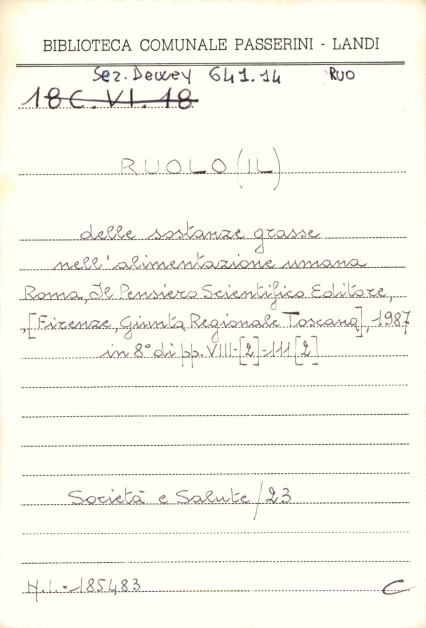 BIBLIOTECA COMUNALE PASSERINI - LANDI
Sez. Dewey 641.14 RUO
18 C. VI. 18
RUOLO (IL)
delle sostanze grasse
nell'alimentazione umana
Roma, Il Pensiero Scientifico Editore,
,[Firenze, Giunta Regionale Toscana], 1987
in 8° di pp. VIII-[2]-111[2]
Società e Salute/23
N.I.-185483 C